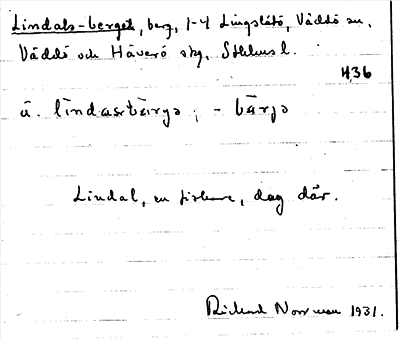 Lindals-berget, berg, 1-4 Lingslätö, Väddö sn,
Väddö och Häverö skg, Sthlms l.
H36
u. ; - bärjə
Lindal, en fiskare, dog där.
Rickard Norrman 1931.